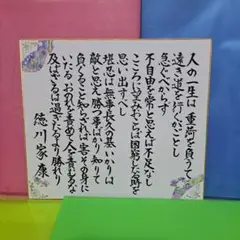 人の一生は 重荷を負うて
遠き道を行くがごとし
急ぐべからず
不自由を常と思えば不足なし
こころに望みおこらば困窮したる時を
思い出すべし
堪忍は無事長久の基 いかりは
敵と思え 勝つ事ばかり知りて
負くること知らざれば 害その身に
いたる おのれを責めて人を責むるな
及ばざるは過ぎたるより 勝れり
徳川家康